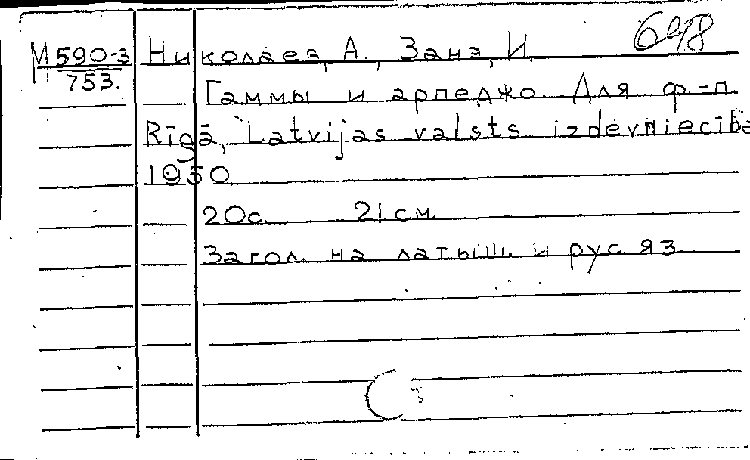 648
М 590-3 Николаев, А., Занэ, И.
753. Гаммы и арпеджо. Для ф-п.
Rīgā, Latvijas valsts izdevniecība
1950
20с. 21 см
Загол. на латыш. и рус яз.